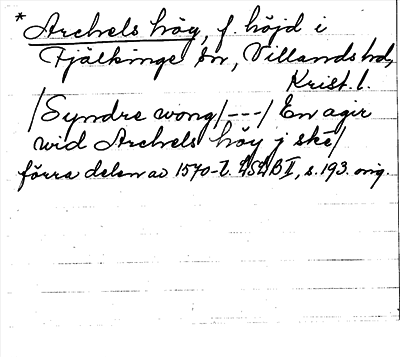 * Archels hög, f. höjd i
Fjälkinge sn, Villands hd,
Krist. l.
/Syndre wong/---/ En agir
wid Archels höy j ske/
förra delen av 1570-t. LSLB I, s. 193. orig.